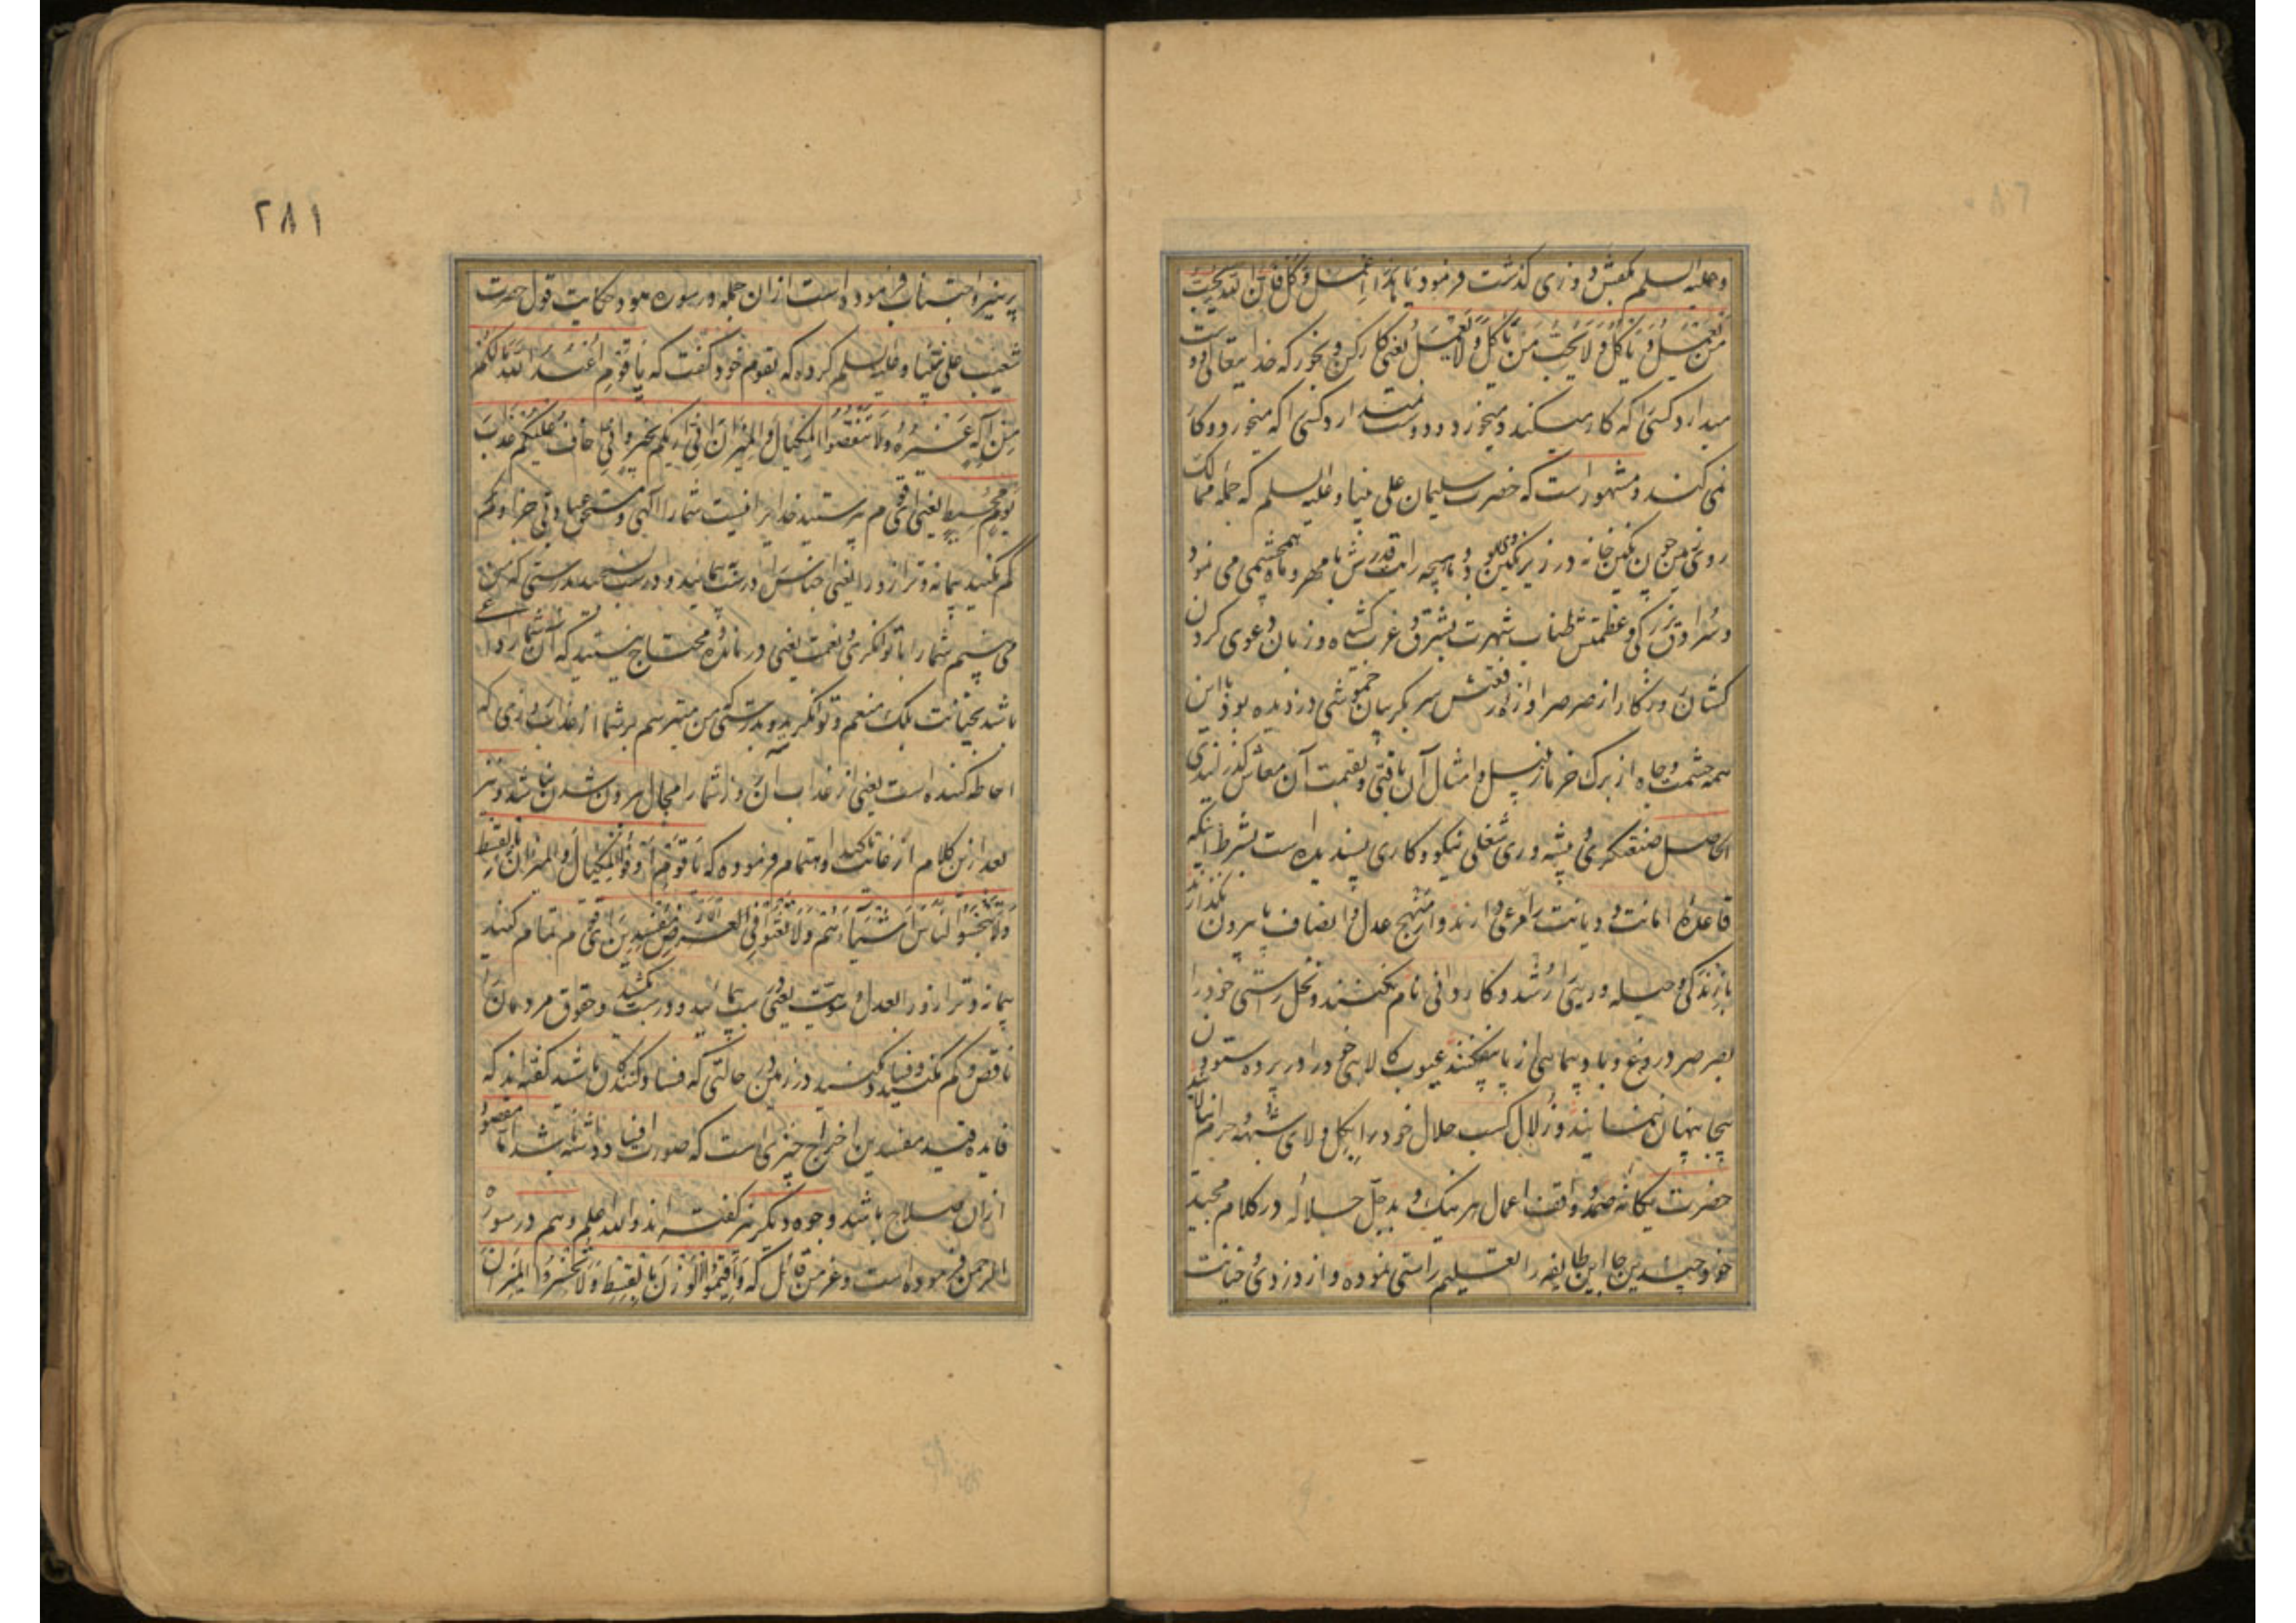 وعلیه السلم بکفش دوزی کذشت فرمود یا هذا اعمل و کل فان الله یحب
من یعمل و یاکل و لا یحب من یاکل و لا یعمل یعنی کار کن و بخور که خدایتعالی دوست
میدارد کسی را که کار میکند و میخورد و دوست نمیدارد کسی را که میخورد و کار
نمی کند و مشهور است که حضرت سلیمان علی نبینا و علیه السلم که جمله ممالک
روی زمین چون نکین خانه در زیر نکین وی بود و ماهیچه رایت قدرش با مهر و ماه همچشمی می نمود
و سرادق بزرکی و عظمتش طناب شهرت بشرق و غرب کشیده و زبان دعوی کردن
کشان روزکار از صرصر اوازه رفعتش سر بکریبان خموشی دزدیده بود با این
همه حشمت و جاه از برک خرما زنبیل و امثال آن بافتی و بقیمت آن معاش کذرانیدی
الحاصل صنعتکری و پیشه وری شغلی نیکو و کاری پسندیده است بشرط انکه
قاعده امانت و دیانت را مرعی دارند و از منهج عدل و انصاف پا بیرون نکذارند
بازندکی و حیله وری را رشد و کاردانی نام نکنند و نخل راستی خود را
بصرصر دروغ و باد پیمایی از پا نیفکنند عیوب کالای خود را در پرده ستودن
بیجا پنهان ننمایند و زلال کسب حلال خود را بکل و لای شبهه حرام نیالایند
حضرت یکانه صمد واقف اعمال هر نیک و بد جل جلاله در کلام مجید
خود چندین جا این طایفه را تعلیم راستی نموده و از دزدی و خیانت
۲۸۱
پرهیز و اجتناب فرموده است از ان جمله در سوره هود حکایت قول حضرت
شعیب علی نبینا و علیه السلم کرده که بقوم خود کفت که یا قوم اعبدوا الله ما لکم
من اله غیره و لا تنقصوا المکیال و المیزان انی اریکم بخیر و انی اخاف علیکم عذاب
یوم محیط یعنی ای قوم پرستید خدایرا نیست شما را الهی و مستحق عبادتی جز او و کم
کم نکنید پیمانه و ترازو را یعنی اجناس را درست پیمائید و درست بسنجید بدرستی که من
می بینم شما را با توانکری و نعمت یعنی درمانده و محتاج نیستید که ان شما را داعی
باشد بخیانت بلکه منعم و توانکرید و بدرستی من میترسم بر شما از عذاب روزی که
احاطه کننده است یعنی از عذاب آن روز شما را مجال بیرون شدن نباشد و نیز
بعد ازین کلام از غایت تاکید و اهتمام فرموده که یا قوم اوفوا المکیال و المیزان بالقسط
و لا تبخسوا الناس اشیاءهم و لا تعثوا فی الارض مفسدین ای قوم تمام کنید
پیمانه و ترازو را بعدل و سویت یعنی درست پیمائید و درست بکشید و حقوق مردمان را
ناقص و کم نکنید و فساد نکنید در زمین در حالتی که فساد کنندکان باشید کفته اند که
فایده قید مفسدین اخراج چیزی است که صورت افساد داشته باشد اما مقصود
ازان صلاح باشد و وجوه دیکر نیز کفته اند والله اعلم و هم در سوره
الرحمن فرموده است و عز من قائل که و اقیموا الوزن بالقسط و لا تخسروا المیزان